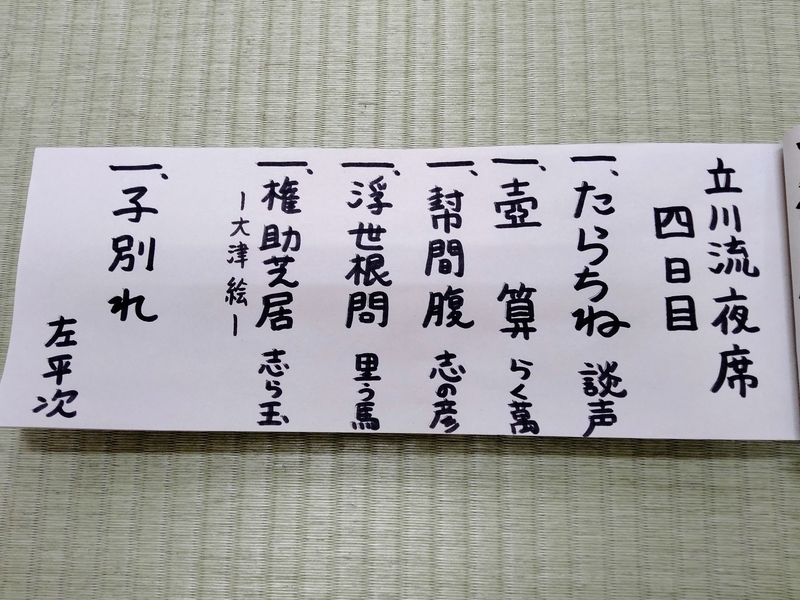 立川流夜席
四日目
一、たらちね 談声
一、壺算 らく萬
一、幇間腹 志の彦
一、浮世根問 里う馬
一、権助芝居 志ら玉
ー大津絵ー
一、子別れ
左平次